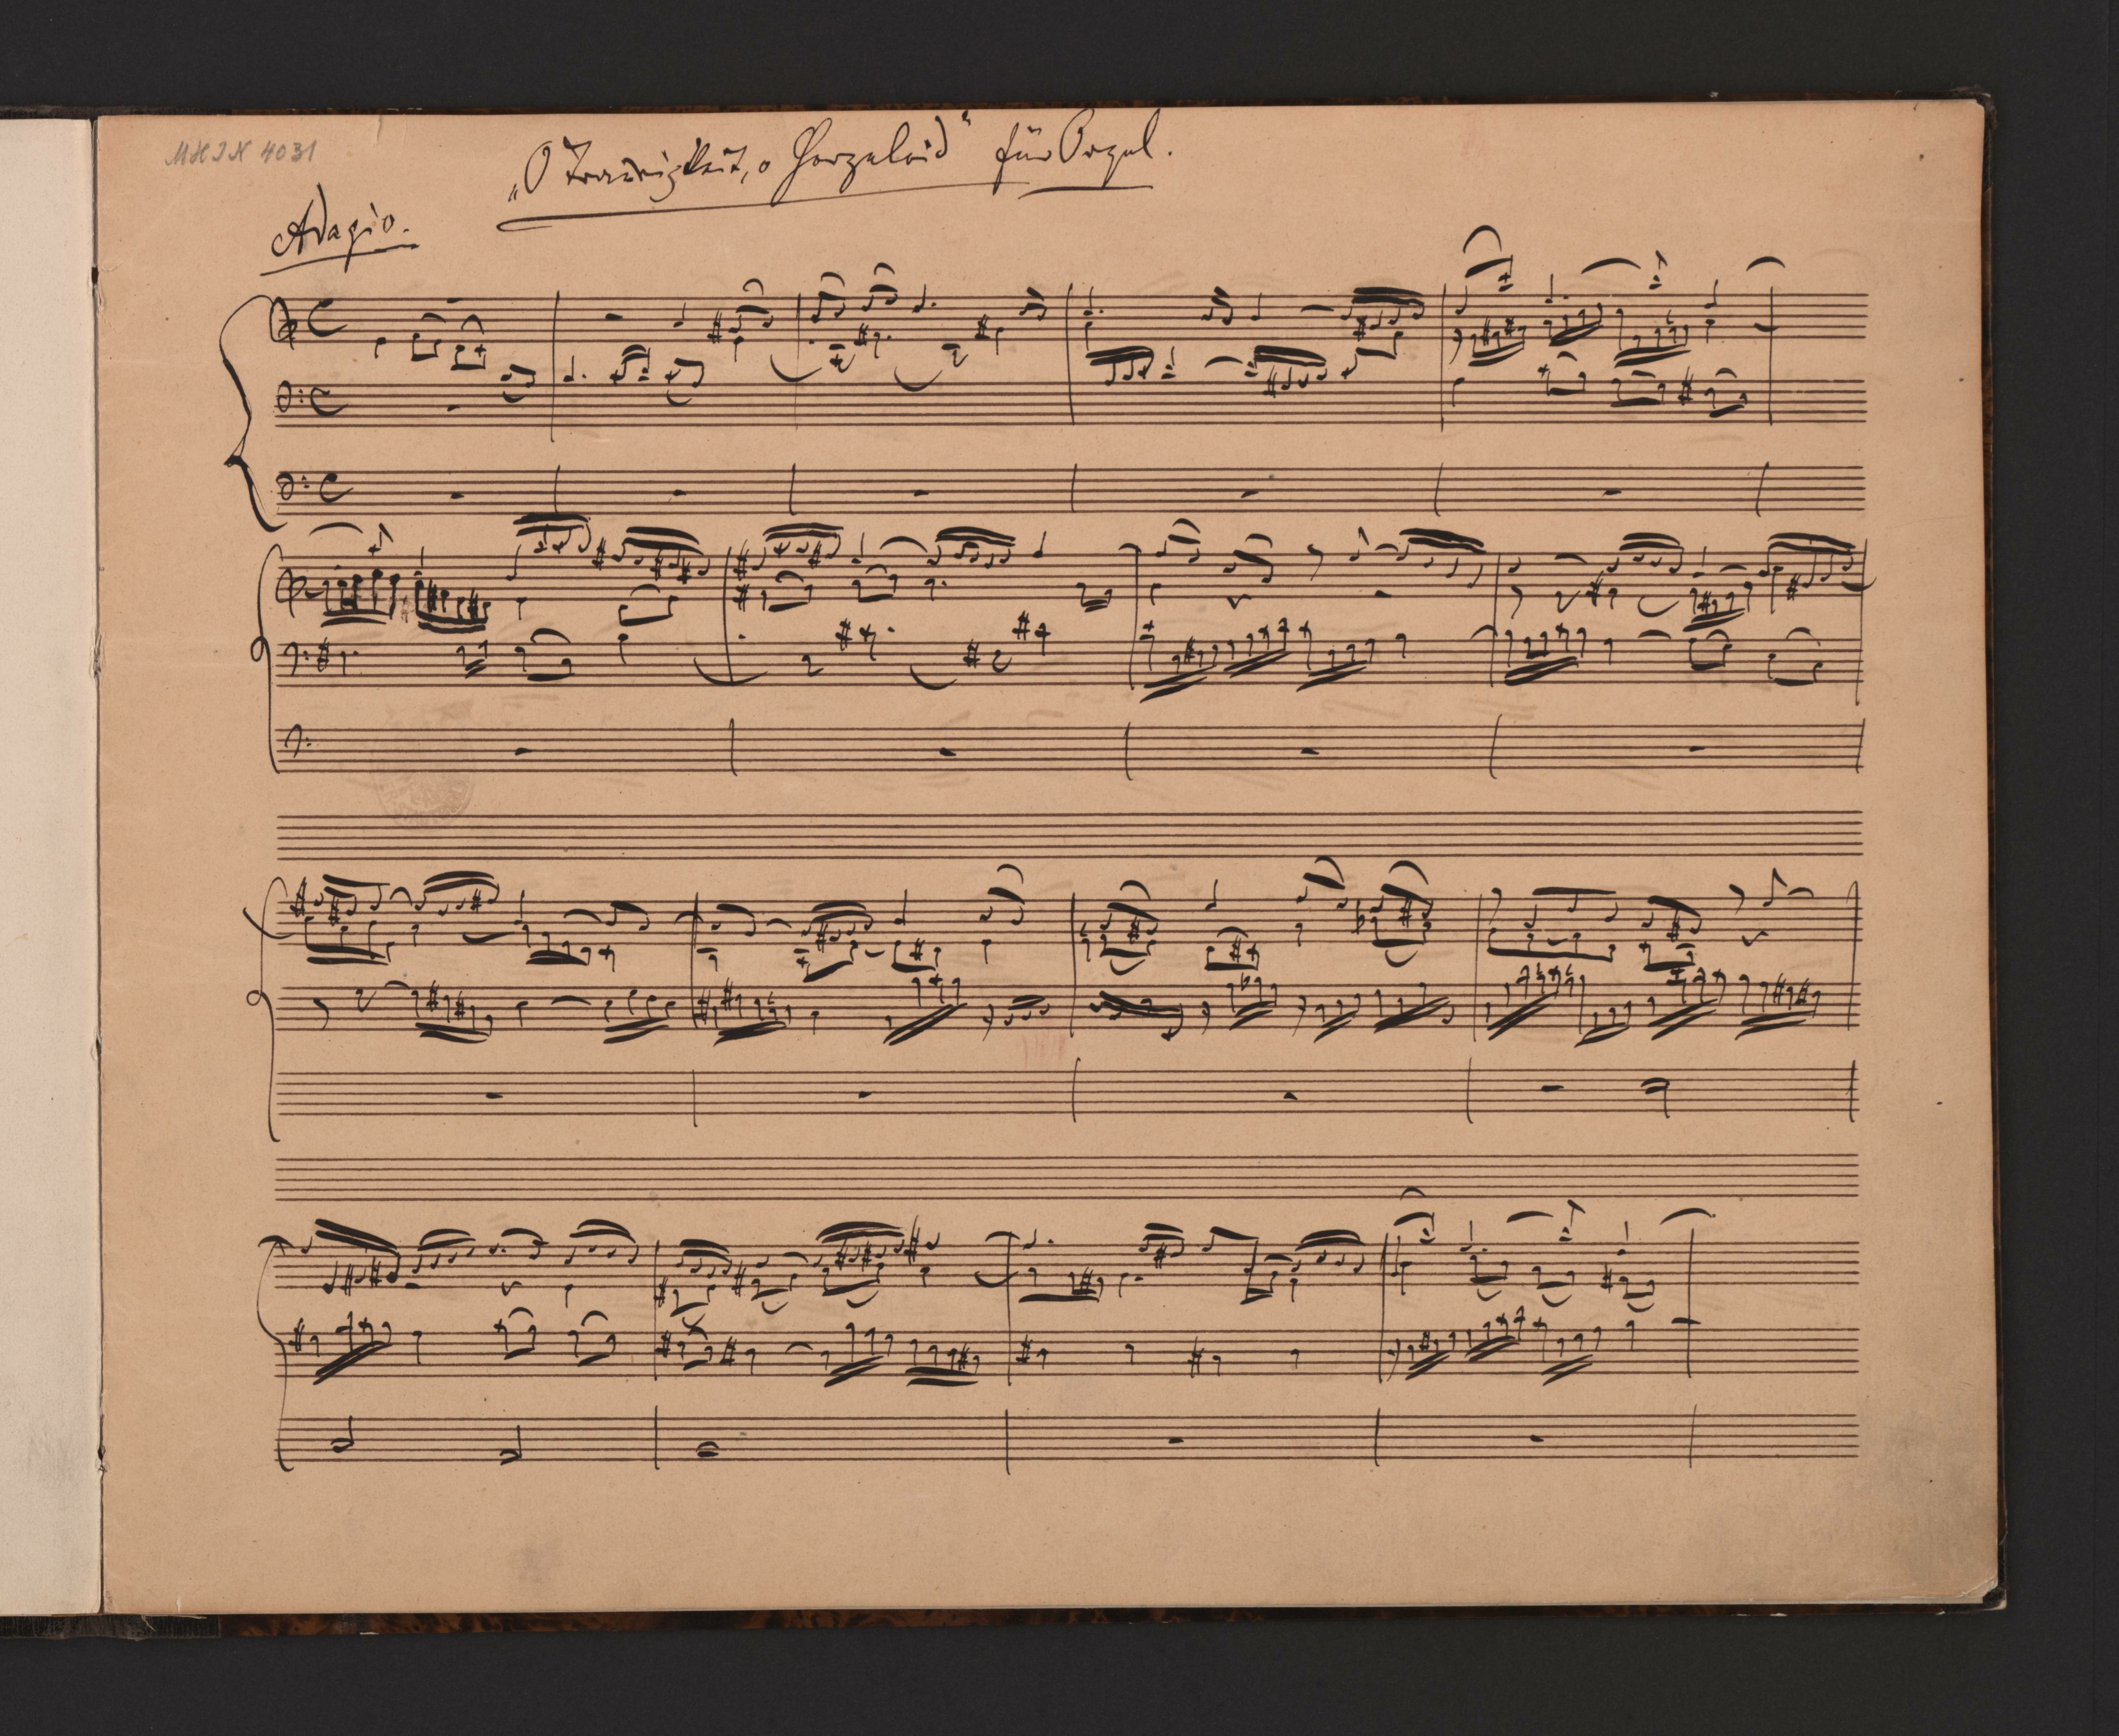 MHIN 4031
„O Traurigkeit, o Herzeleid" für Orgel.
Adagio.